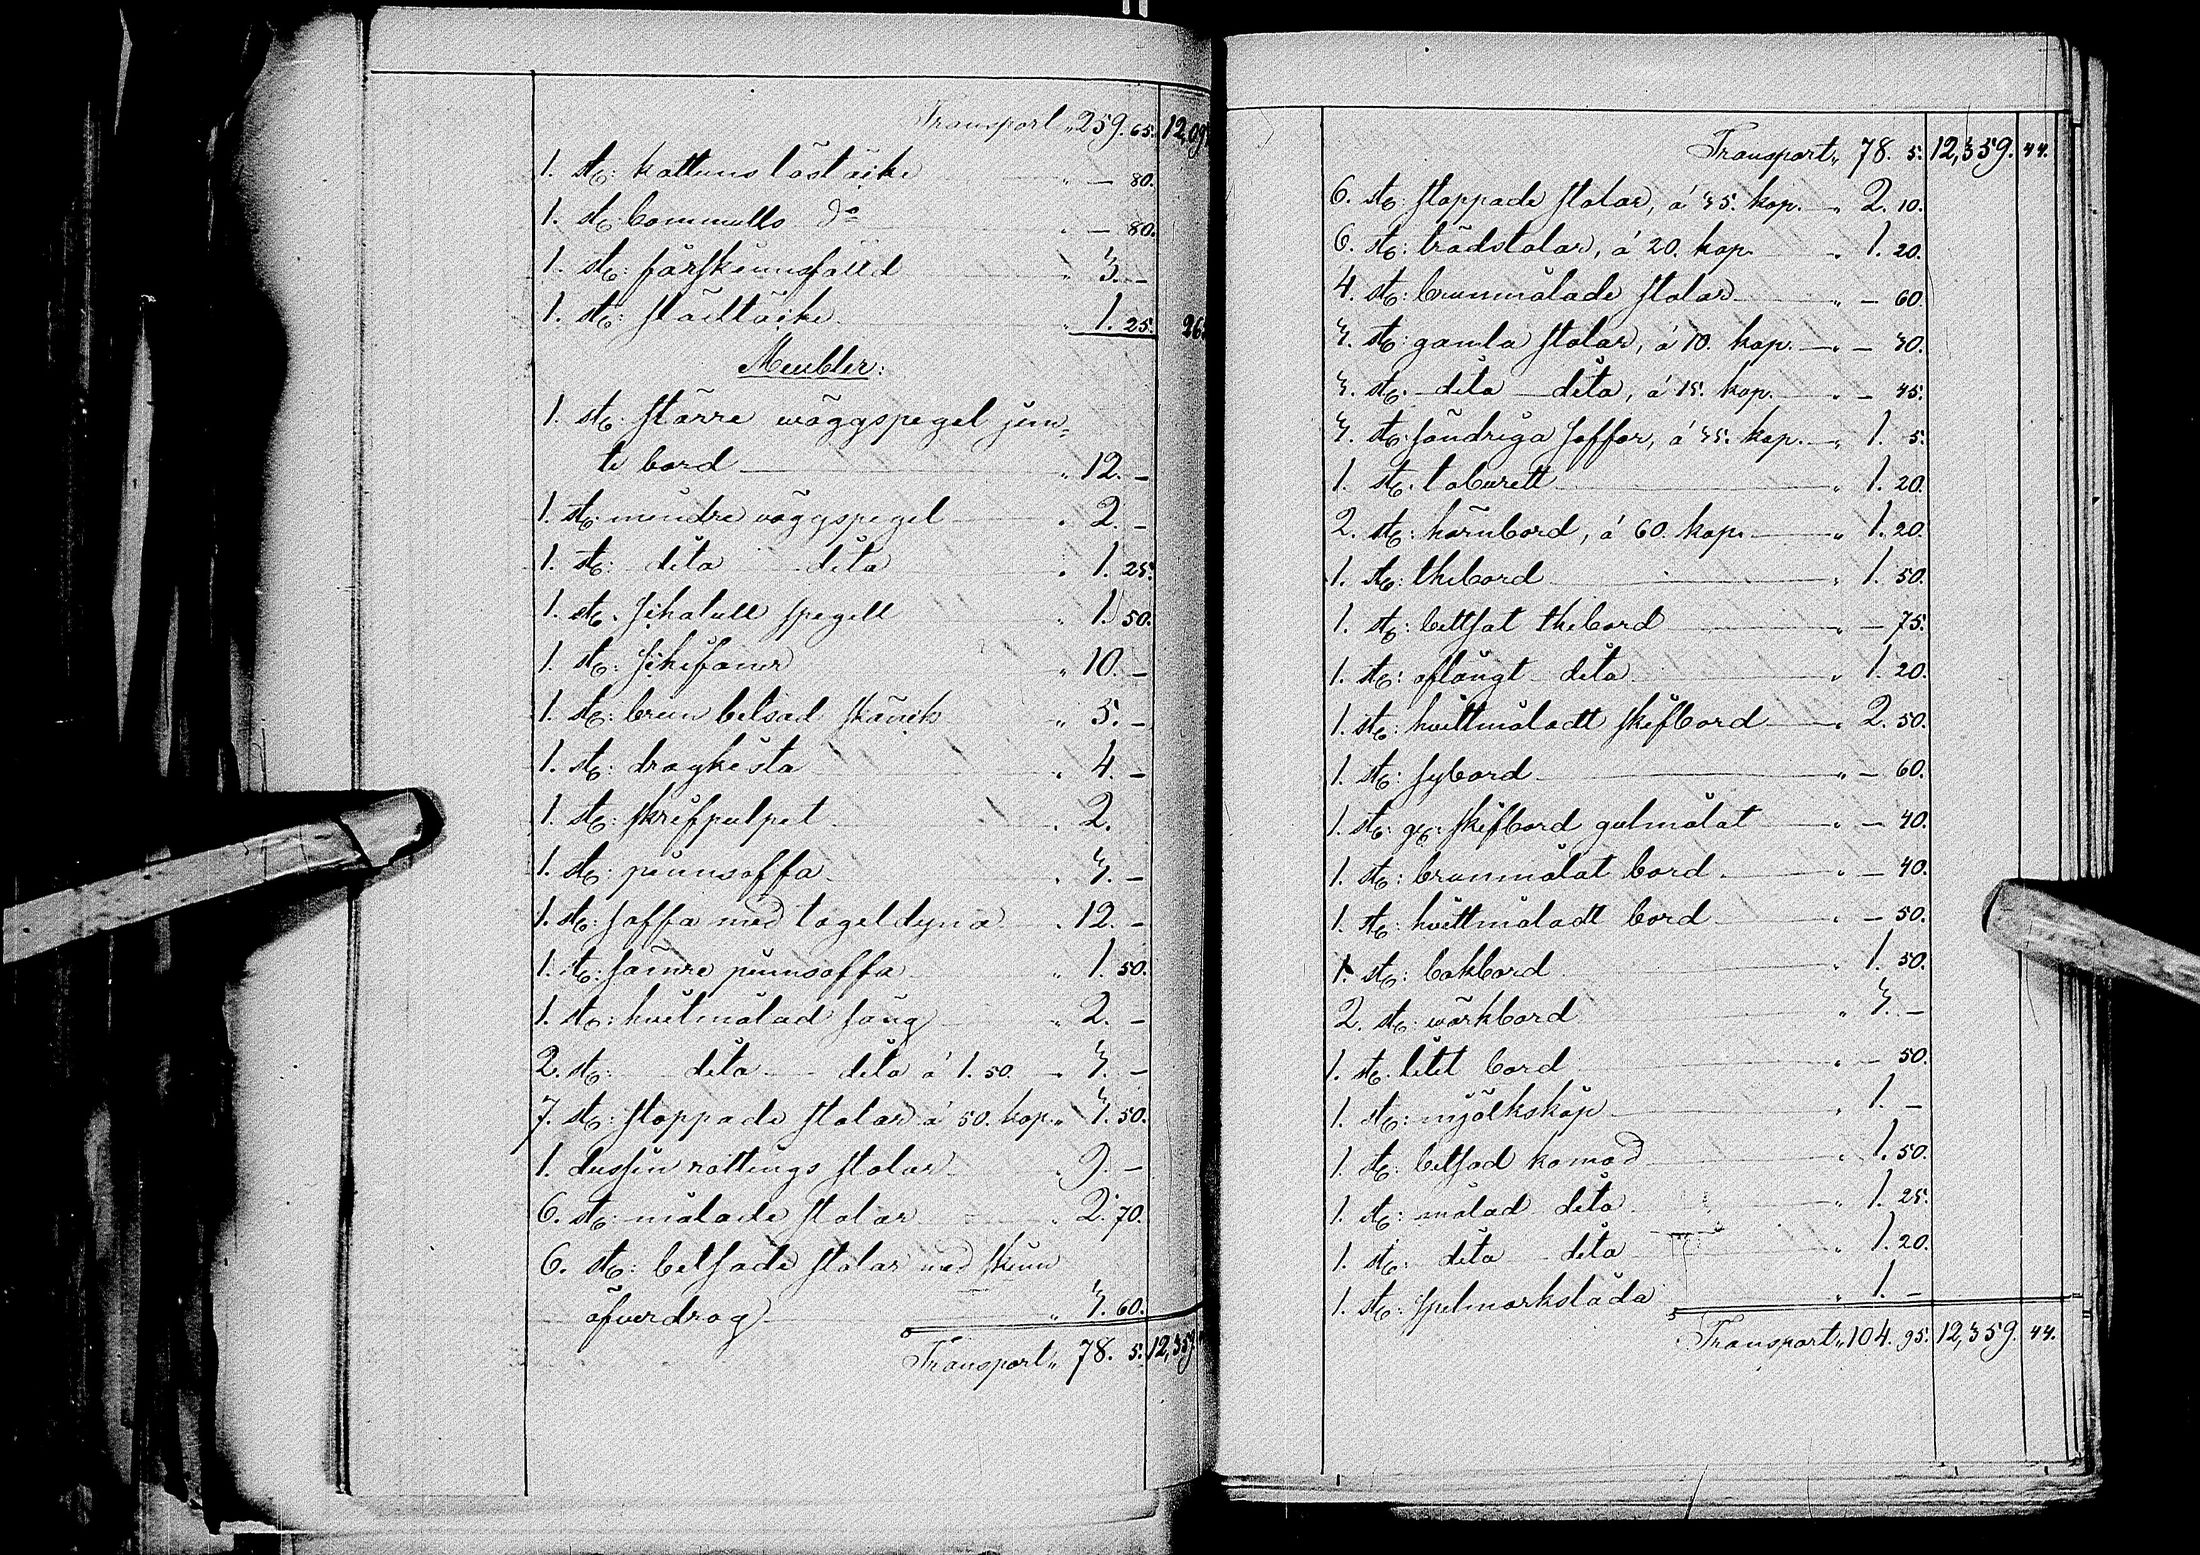 Transport „ 259. 65. 12,09
1. st: kattuns löstäcke „ — 80.
1. st: bommulls do „ — 80.
1. st: fårskinnsfäll „ 3. —
1. st: städtäcke „ 1. 25. 26
Meubler:
1. st: större wäggspegel jem-
te bord „ 12. —
1. st: mindre wäggspegel „ 2. —
1. st: dito dito „ 1. 25.
1. st: schatull spegell „ 1. 50.
1. st: schefoner „ 10. —
1. st: brun betsad skänk „ 5. —
1. st: dragkista „ 4. —
1. st: skrifpulpet „ 2.
1. st: pinnsoffa „ 3. —
1. st: soffa med tageldyna „ 12. —
1. st: sämre pinnsoffa „ 1. 50.
1. st: hvitmålad säng „ 2. —
2. st: dito dito á 1. 50. „ 3. —
7. st: stoppade stolar á 50. kop. „ 3. 50.
1. dussin rottings stolar „ 9. —
6. st: målade stolar „ 2. 70.
6. st: betsade stolar med skinn
öfverdrag „ 3. 60.
Transport „ 78. 5. 12,359
Transport „ 78. 5. 12,359. 44.
6. st: stoppade stolar, á 35. kop. „ 2. 10.
6. st: trädstolar, á 20. kop. „ 1. 20.
4. st: brunmålade stolar „ — 60.
3. st: gamla stolar, á 10. kop. „ — 30.
3. st: dito dito, á 15. kop. „ — 45.
3. st: söndriga soffor, á 35. kop. „ 1. 5.
1. st: taburett „ 1. 20.
2. st: hörnbord, á 60. kop. „ 1. 20.
1. st: thebord „ 1. 50.
1. st: bettsat thebord „ — 75.
1. st: aflångt dito „ 1. 20.
1. st: hvittmåladt skifbord „ 2. 50.
1. st: sybord „ — 60.
1. st: gl: skifbord gulmålat „ — 40.
1. st: brunmålat bord „ — 40.
1. st: hvittmåladt bord „ — 50.
1. st: bakbord „ 1. 50.
2. st: wärkbord „ 3. —
1. st: litet bord „ — 50.
1. st: mjölkskåp „ 1. —
1. st: betsad komod „ 1. 50.
1. st: målad dito „ 1. 25.
1. st: dito dito „ 1. 20.
1. st: spelmarkslåda „ 1. —
Transport „ 104. 95. 12,359. 44.